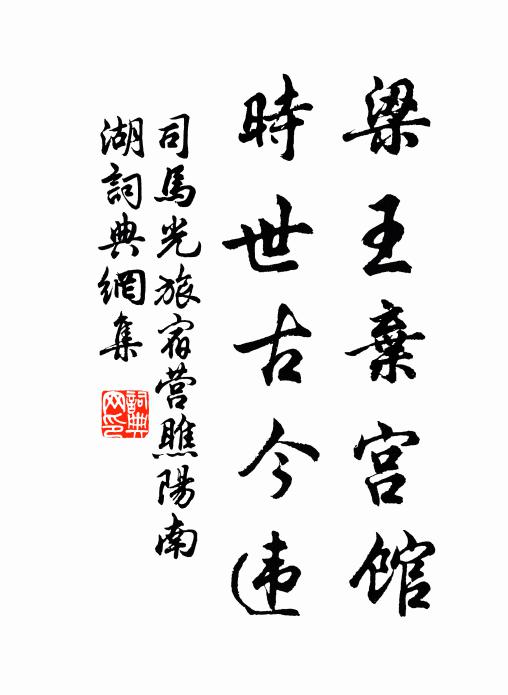 梁王棄宮館
時世古今违
司馬光旅宿营瞧陽南
湖詞典網集
詞典
网印